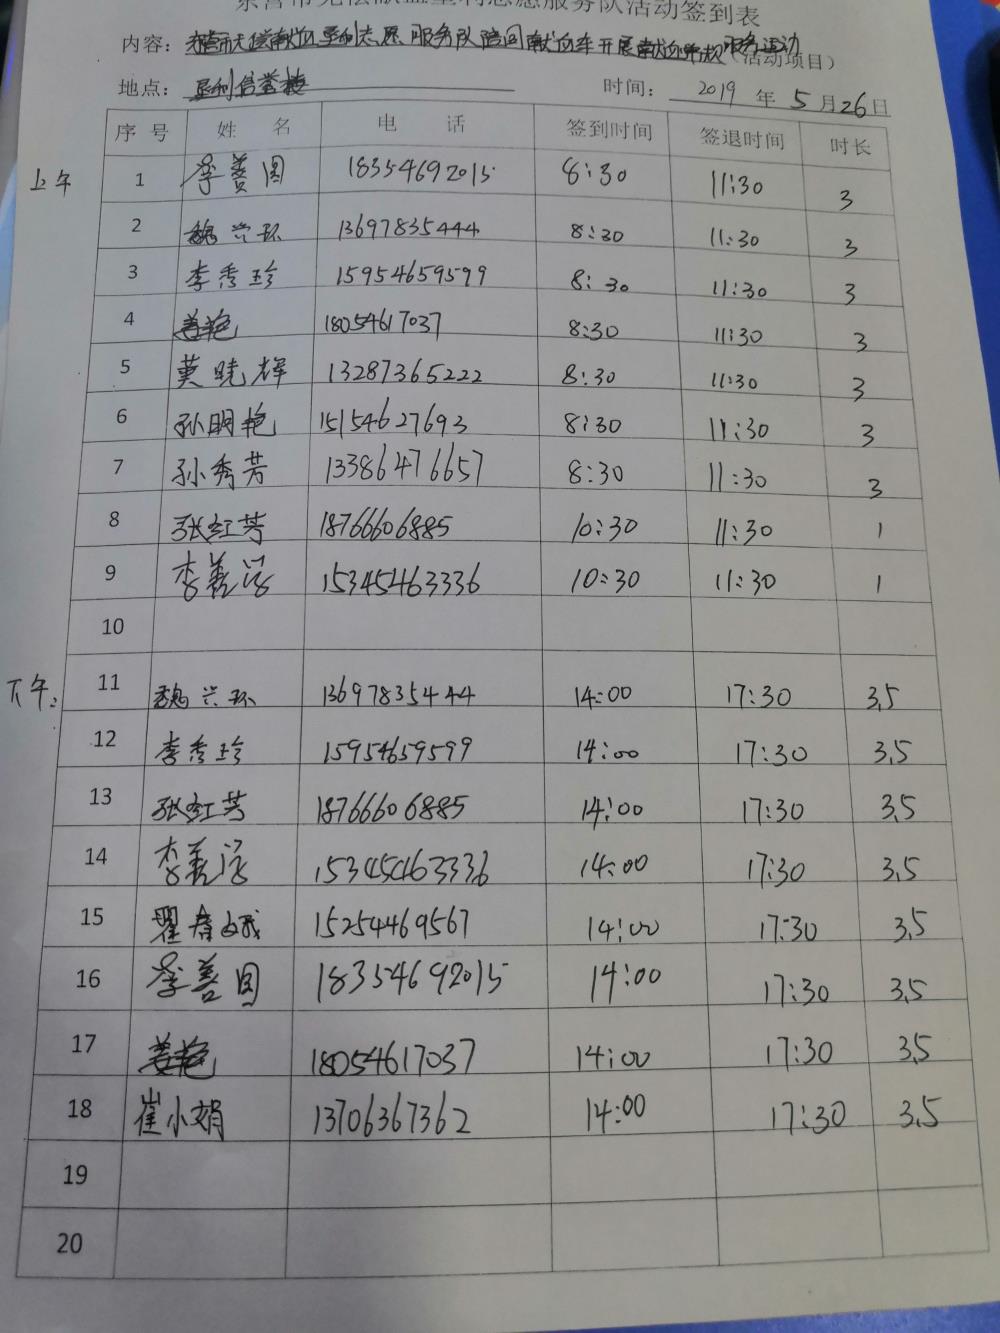 东营市无偿献血垦利志愿服务队活动签到表
内容：东营市无偿献血垦利志愿服务队陪同献血车开展献血 服务活动（活动项目）
地点：垦利信誉楼 时间：2019年5月26日
序号 姓名 电话 签到时间 签退时间 时长
上午 1 李善国 18354692015 8:30 11:30 3
2 魏兴环 13697835444 8:30 11:30 3
3 李秀玲 15954659599 8:30 11:30 3
4 姜艳 18054617037 8:30 11:30 3
5 莫晓辉 13287365222 8:30 11:30 3
6 孙明艳 15154627693 8:30 11:30 3
7 孙秀芳 13386476657 8:30 11:30 3
8 张红芳 18766606885 10:30 11:30 1
9 李 15345463336 10:30 11:30 1
10
下午： 11 魏兴环 13697835444 14:00 17:30 3.5
12 李秀玲 15954659599 14:00 17:30 3.5
13 张红芳 18766606885 14:00 17:30 3.5
14 李 15345463336 14:00 17:30 3.5
15 瞿春娥 15254469567 14:00 17:30 3.5
16 李善国 18354692015 14:00 17:30 3.5
17 姜艳 18054617037 14:00 17:30 3.5
18 崔小娟 13706367362 14:00 17:30 3.5
19
20